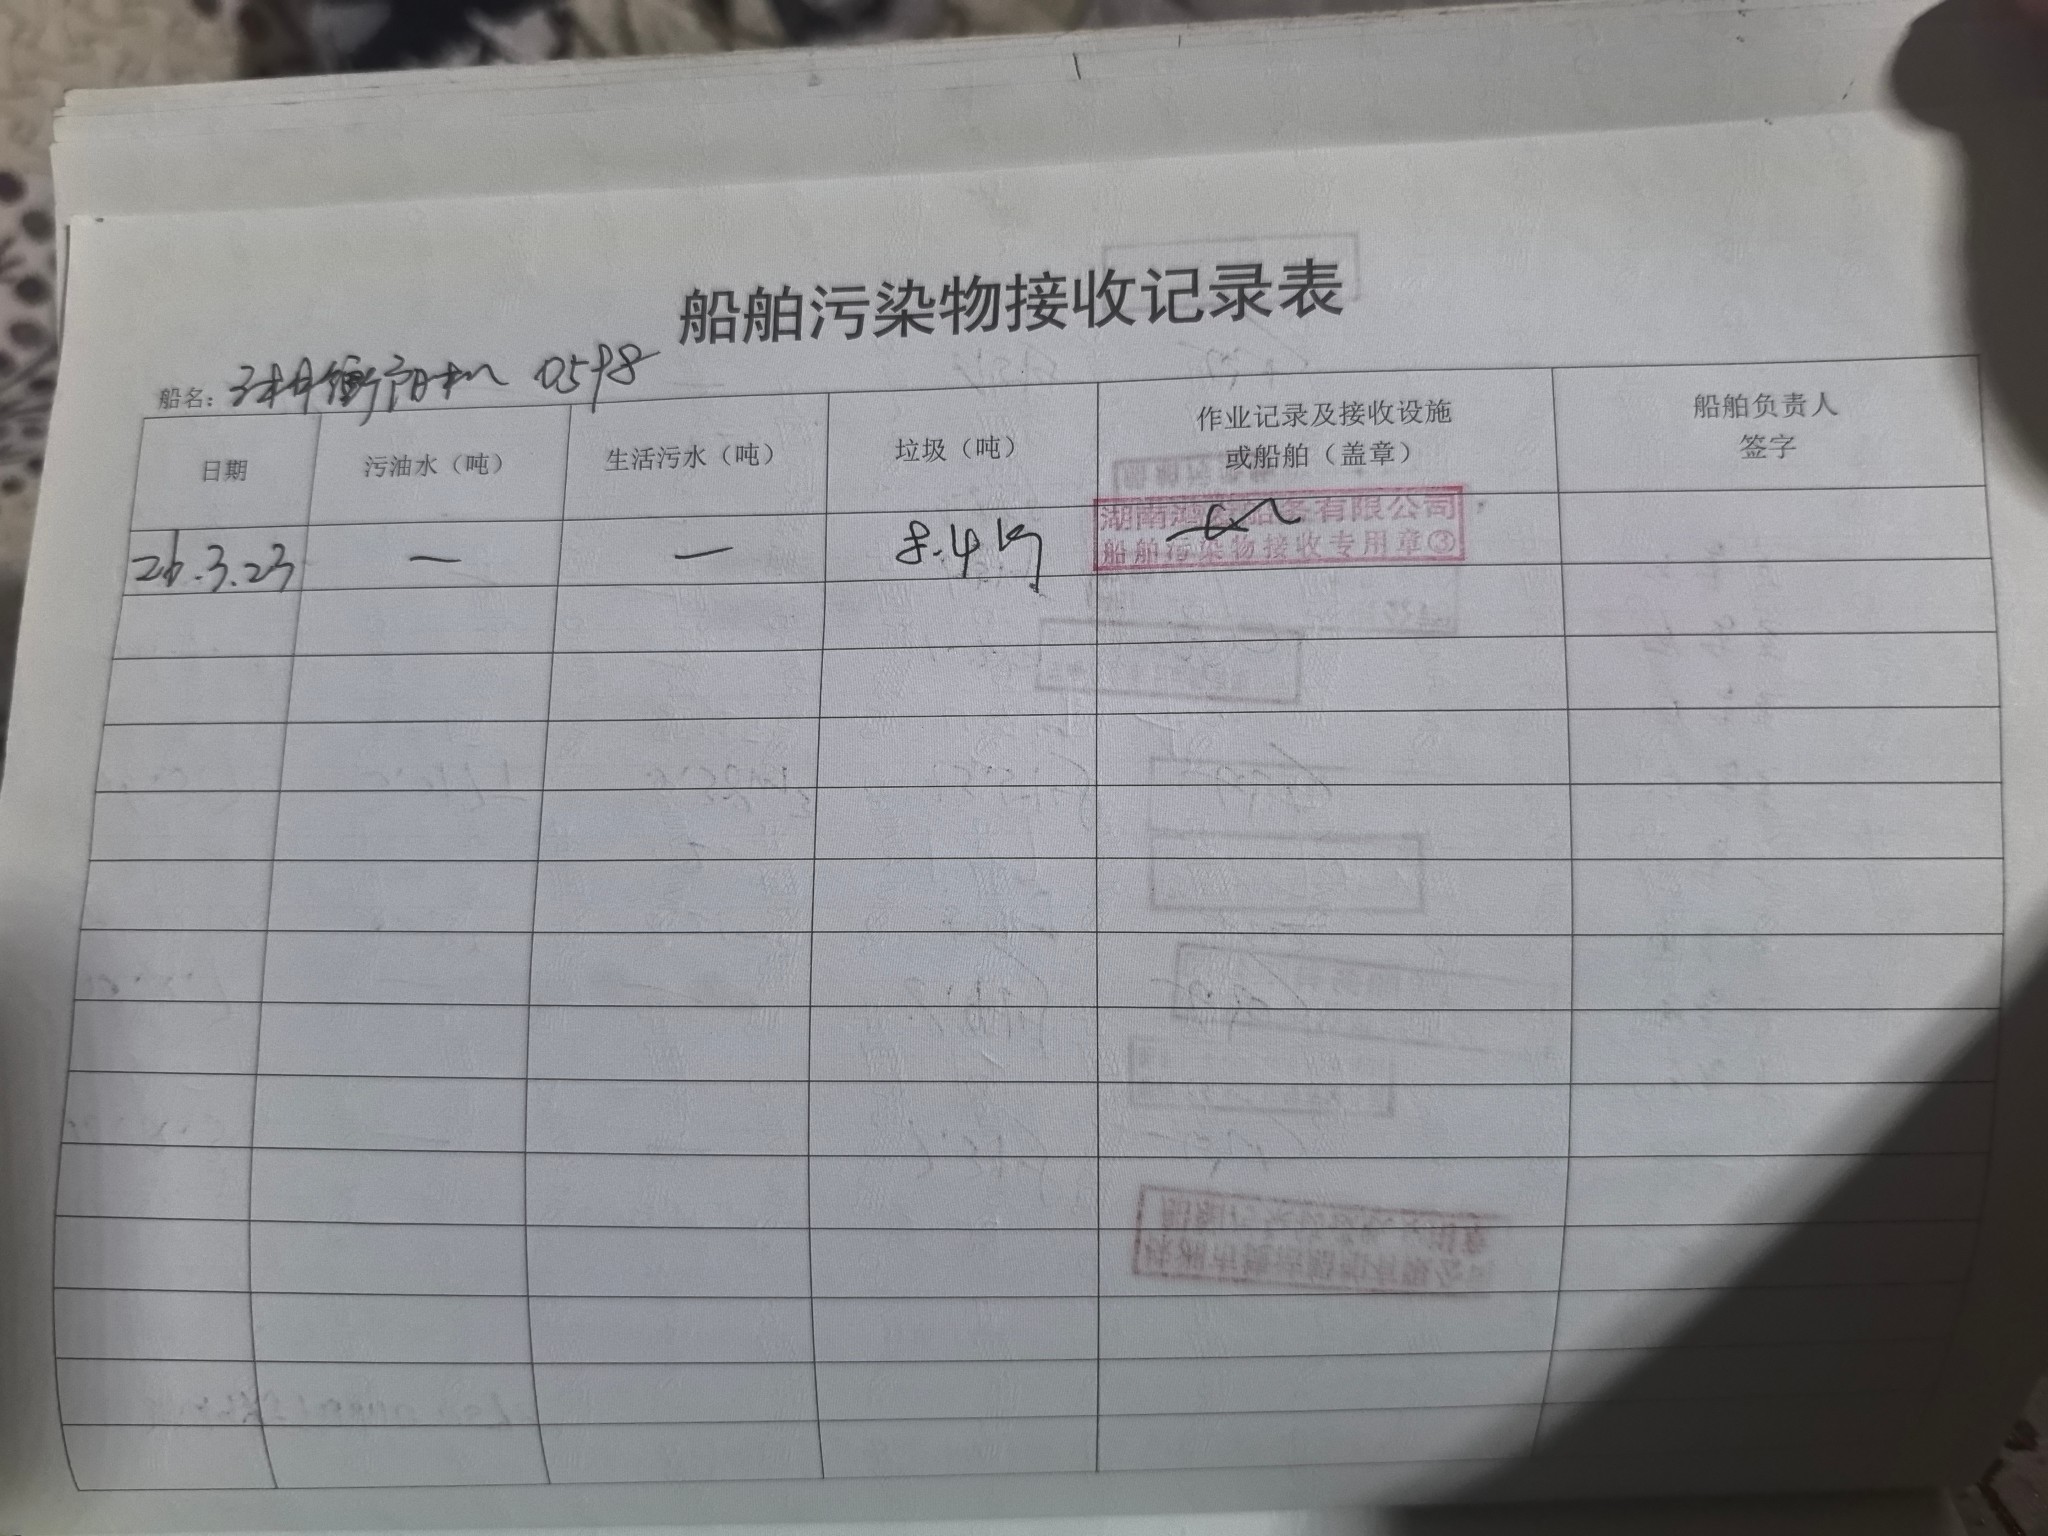 船舶污染物接收记录表
船名: 衡阳机 0598
日期 污油水（吨） 生活污水（吨） 垃圾（吨） 作业记录及接收设施或船舶（盖章） 船舶负责人签字
26.3.23 — — 8.4kg
湖南 船务有限公司
船舶污染物接收专用章③